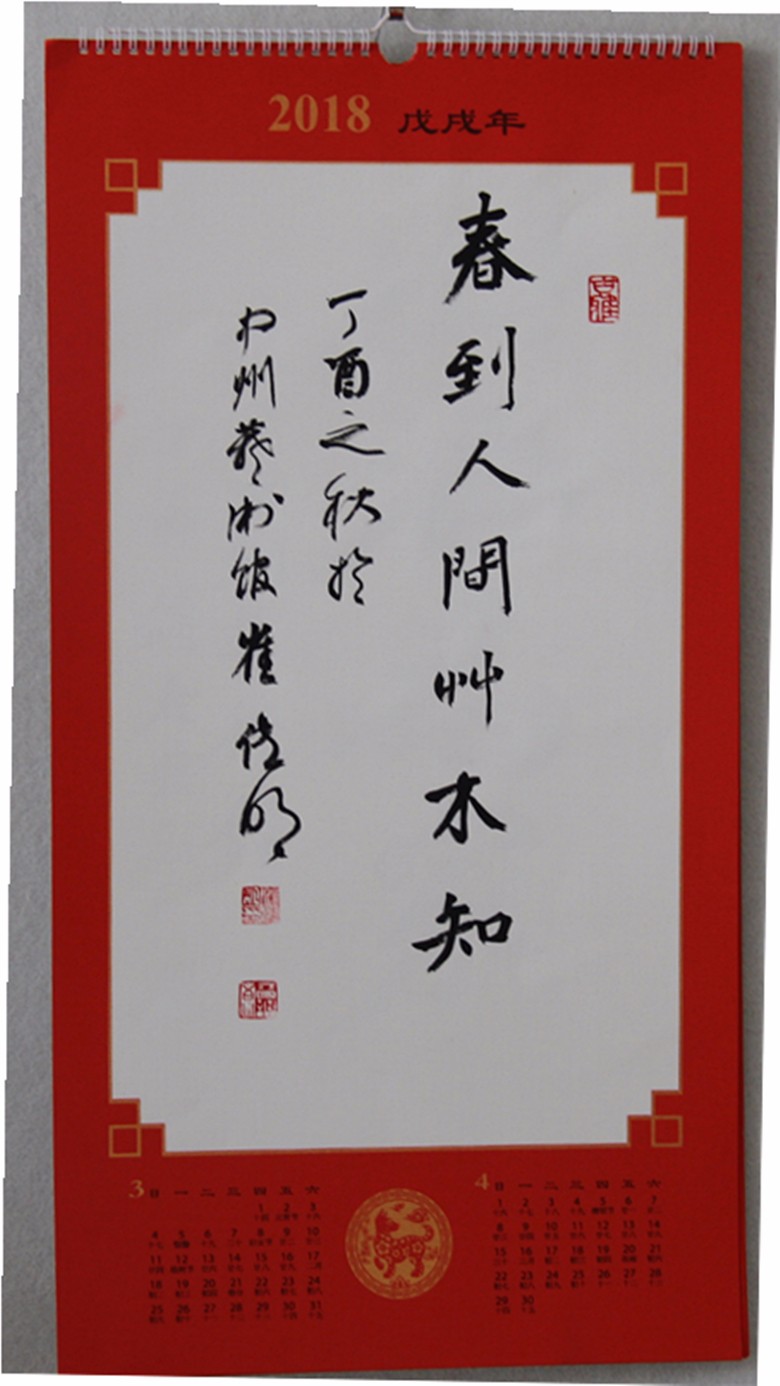 2018 戊戌年
春到人間艸木知
丁酉之秋於
中州藝術館崔
3 日 一 二 三 四 五 六
1 2 3
4 5 6 7 8 9 10
11 12 13 14 15 16 17
18 19 20 21 22 23 24
25 26 27 28 29 30 31
4 日 一 二 三 四 五 六
1 2 3 4 5 6 7
8 9 10 11 12 13 14
15 16 17 18 19 20 21
22 23 24 25 26 27 28
29 30